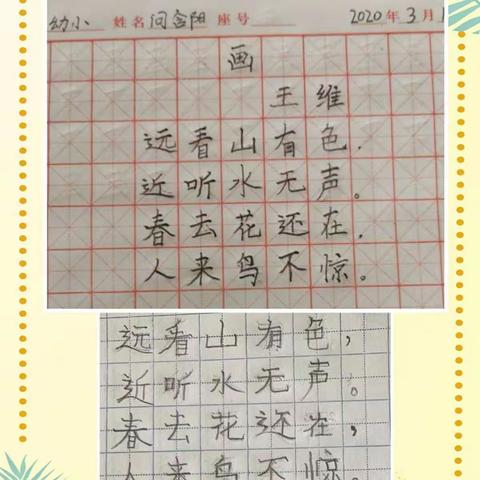 幼小 姓名 闫含阳 座号 2020年3月1
画
王维
远看山有色，
近听水无声。
春去花还在，
人来鸟不惊。
远看山有色，
近听水无声。
春去花还在，
人来鸟不惊。